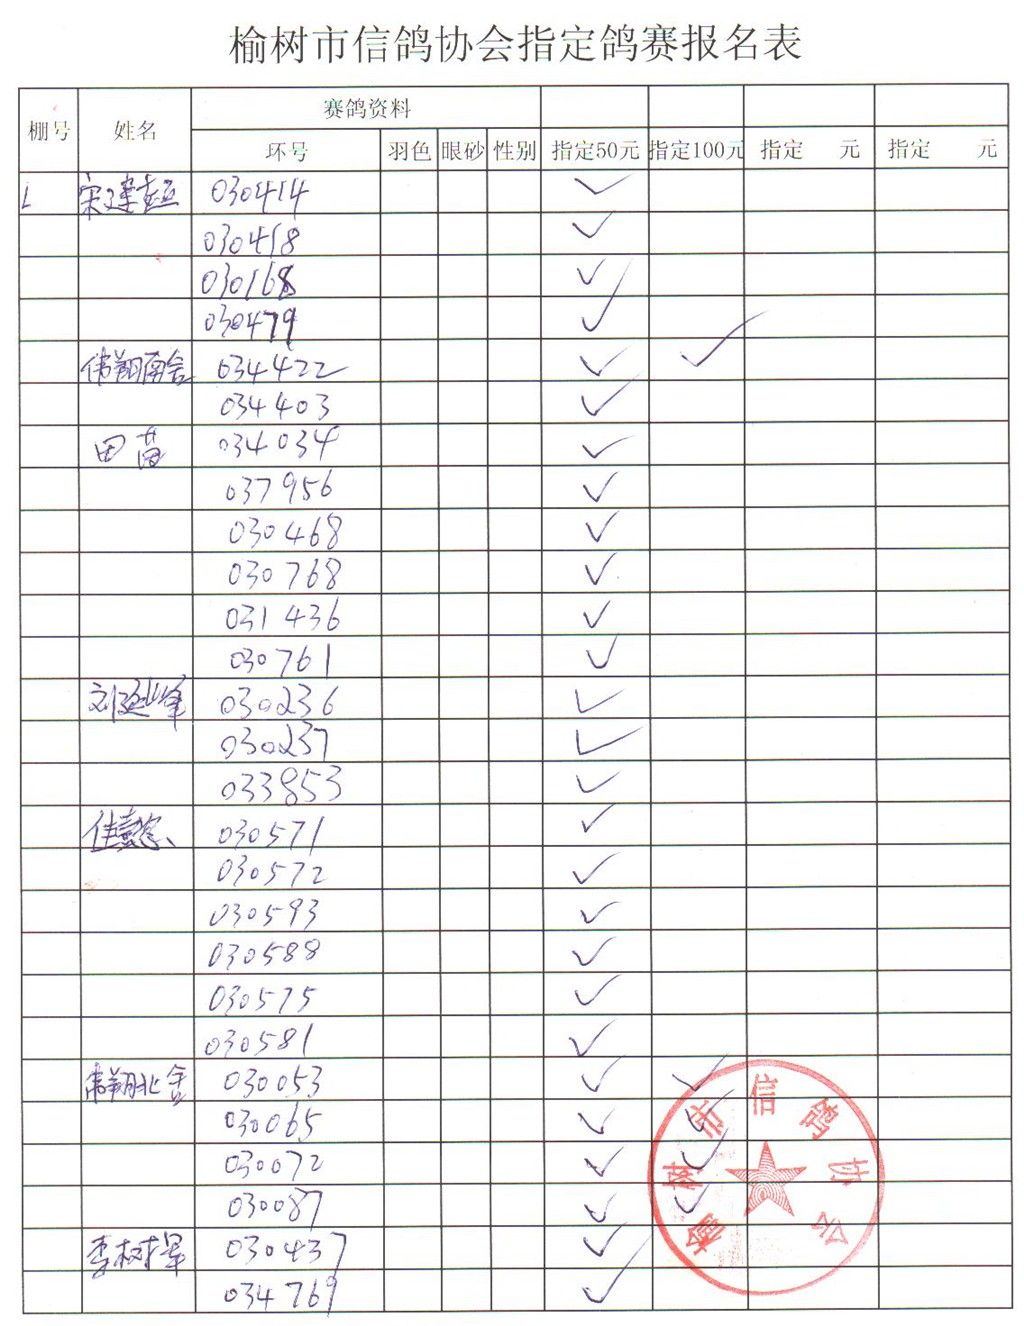 榆树市信鸽协会指定鸽赛报名表
棚号 姓名 赛鸽资料
环号 羽色 眼砂 性别 指定50元 指定100元 指定 元 指定 元
1 宋建 030414 ✓
030418 ✓
030168 ✓
030479 ✓
伟翔南舍 034422 ✓ ✓
034403 ✓
田苗 034034 ✓
037956 ✓
030468 ✓
030768 ✓
031436 ✓
030761 ✓
刘延峰 030236 ✓
030237 ✓
033853 ✓
佳 030571 ✓
030572 ✓
030593 ✓
030588 ✓
030575 ✓
030581 ✓
伟翔北舍 030053 ✓ ✓
030065 ✓ ✓
030072 ✓ ✓
030087 ✓ ✓
李树军 030437 ✓
034769 ✓
榆树市信鸽协会